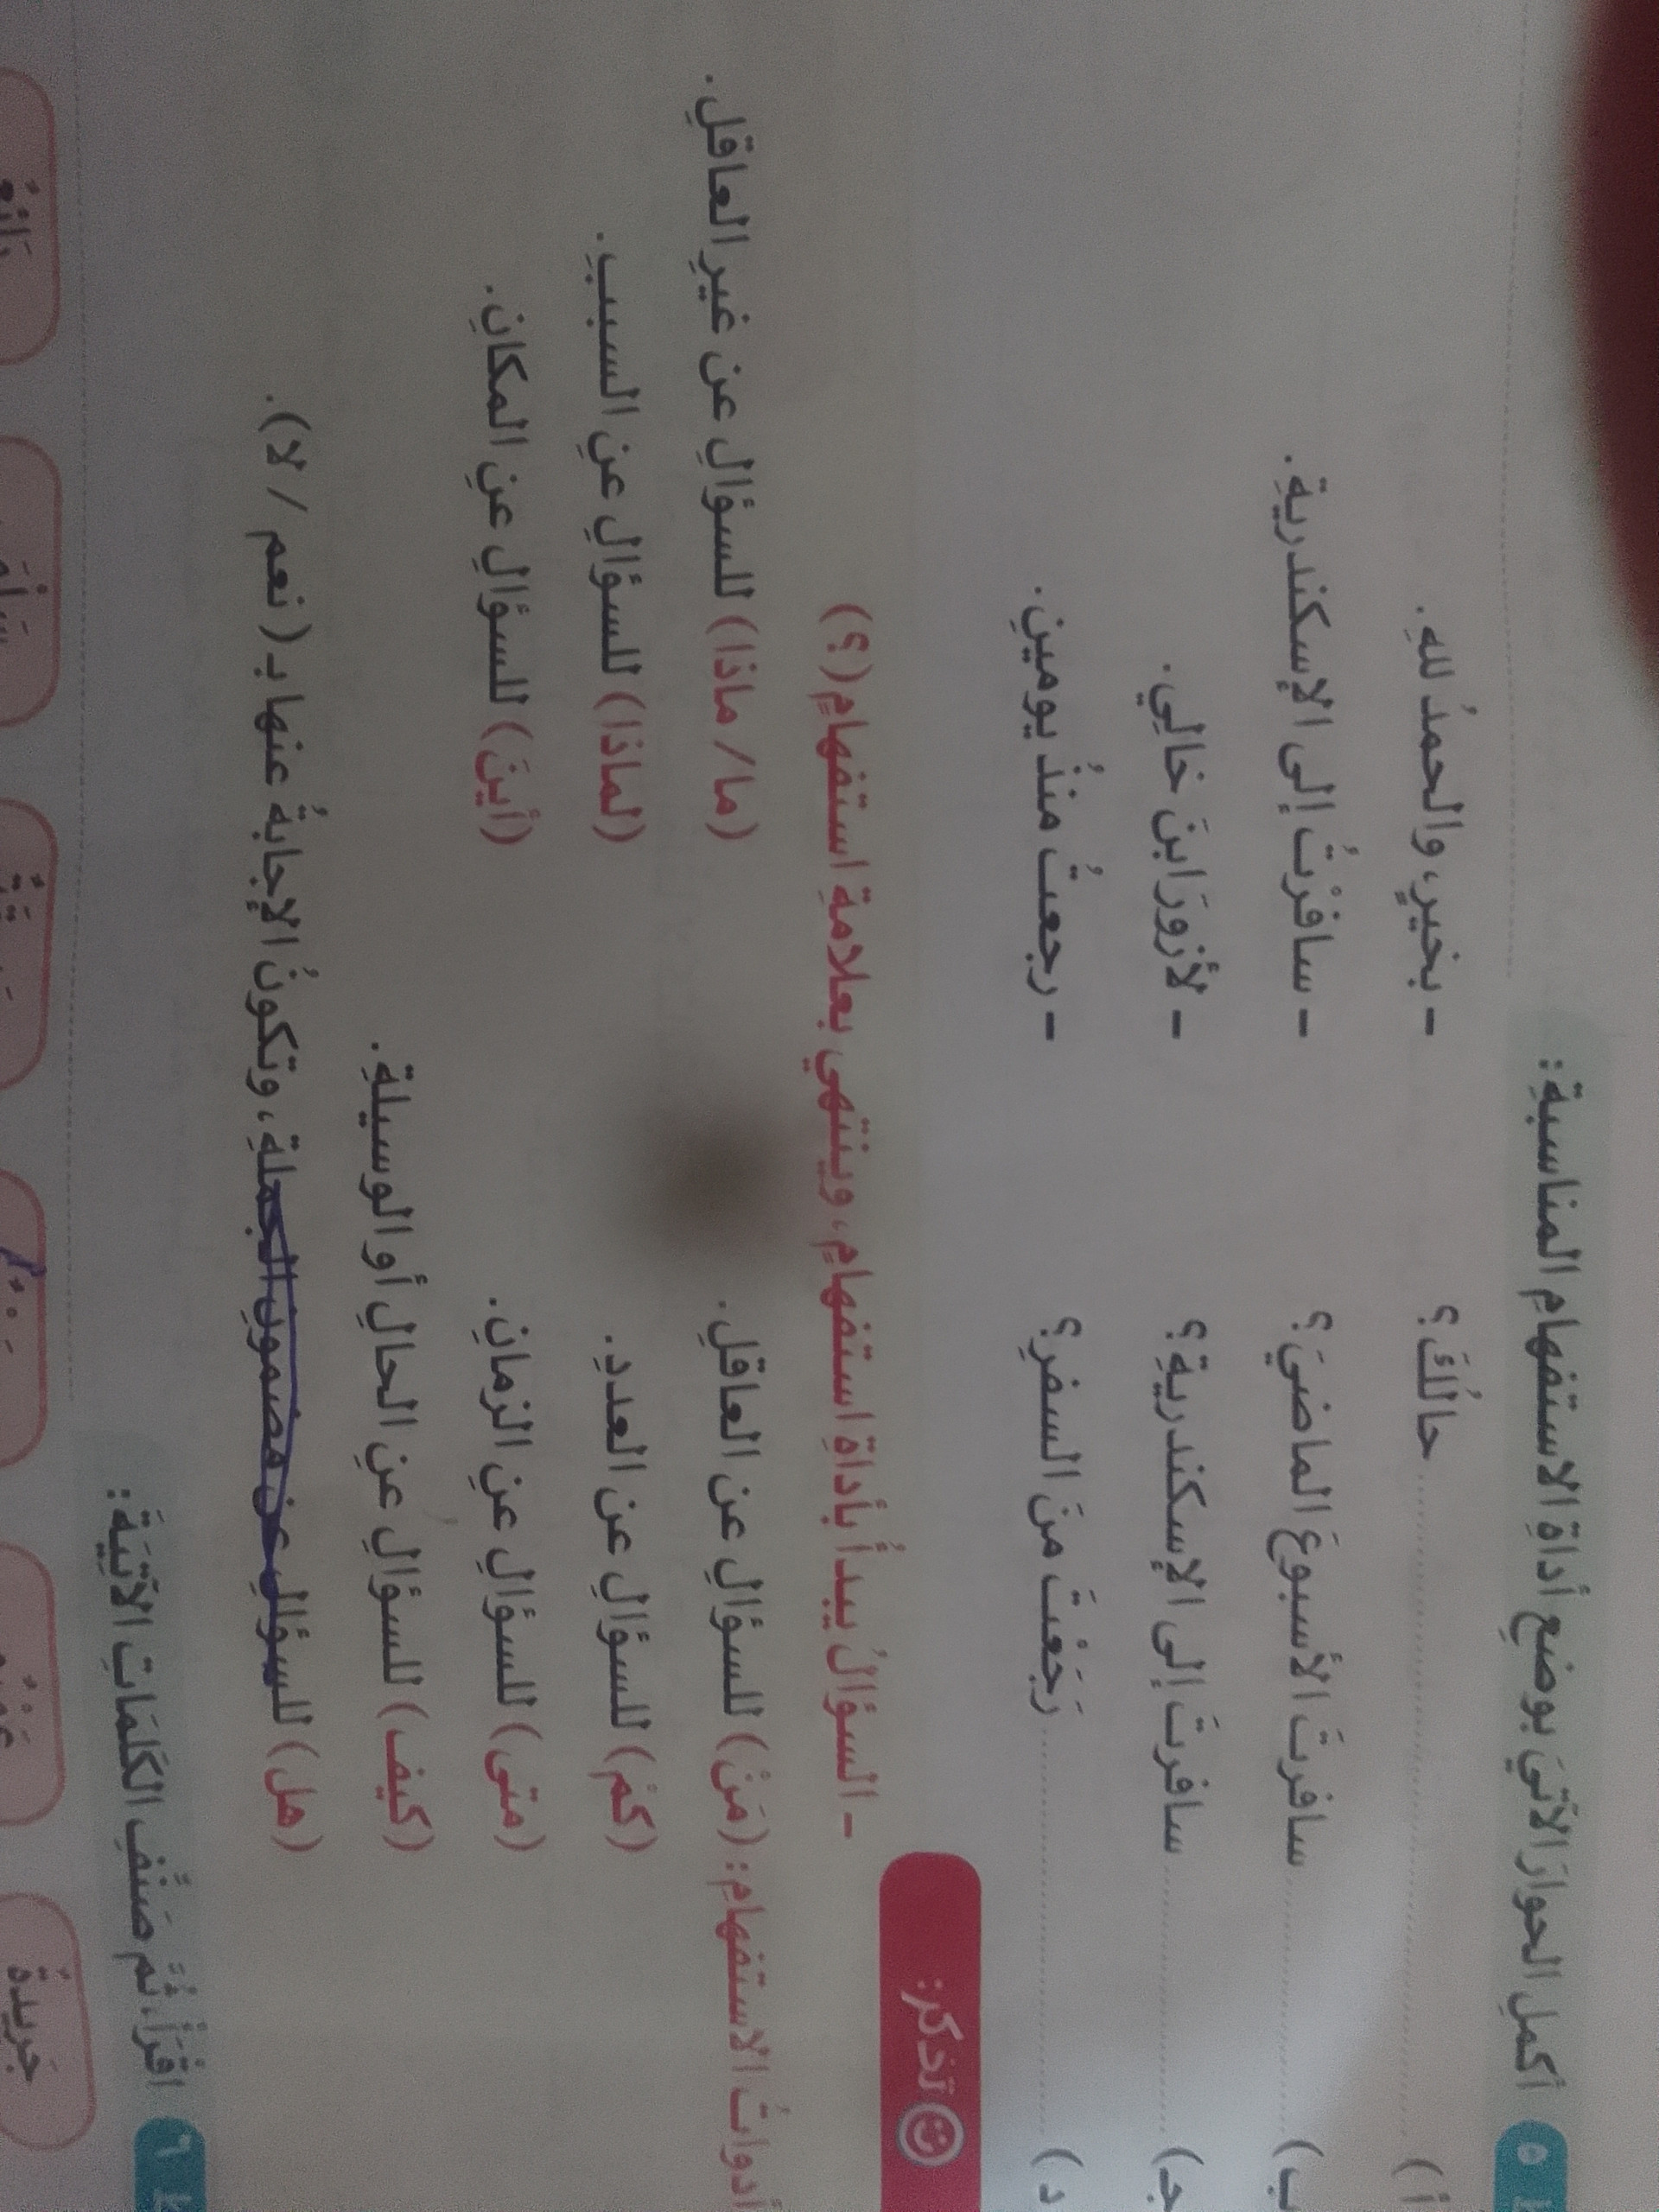 ٥ أكملِ الحوارَ الآتيَ بوضعِ أداةِ الاستفهامِ المناسبةِ:
أ) .......... حالُكَ؟ - بخيرٍ، والحمدُ للهِ.
ب) .......... سافرتَ الأسبوعَ الماضيَ؟ - سافرْتُ إلى الإسكندريةِ.
جـ) .......... سافرتَ إلى الإسكندريةِ؟ - لأزورَ ابنَ خالِي.
د) .......... رَجَعْتَ منَ السفرِ؟ - رجعتُ منذُ يومينِ.
تذكر:
- السؤالُ يبدأُ بأداةِ استفهامٍ، وينتهي بعلامةِ استفهامٍ (؟)
أدواتُ الاستفهامِ: (مَنْ) للسؤالِ عن العاقلِ. (ما/ ماذا) للسؤالِ عن غيرِ العاقلِ.
(كمْ) للسؤالِ عن العددِ. (لماذا) للسؤالِ عنِ السببِ.
(متى) للسؤالِ عنِ الزمانِ. (أينَ) للسؤالِ عنِ المكانِ.
(كيف) للسؤالِ عنِ الحالِ أو الوسيلةِ.
(هل) للسؤالِ عن مضمونِ الجملةِ، وتكونُ الإجابةُ عنها بـ (نعم / لا).
٦ اقْرَأْ، ثُمَّ صَنِّفِ الكَلِمَاتِ الآتِيَةَ:
جَرِيدَةٌ